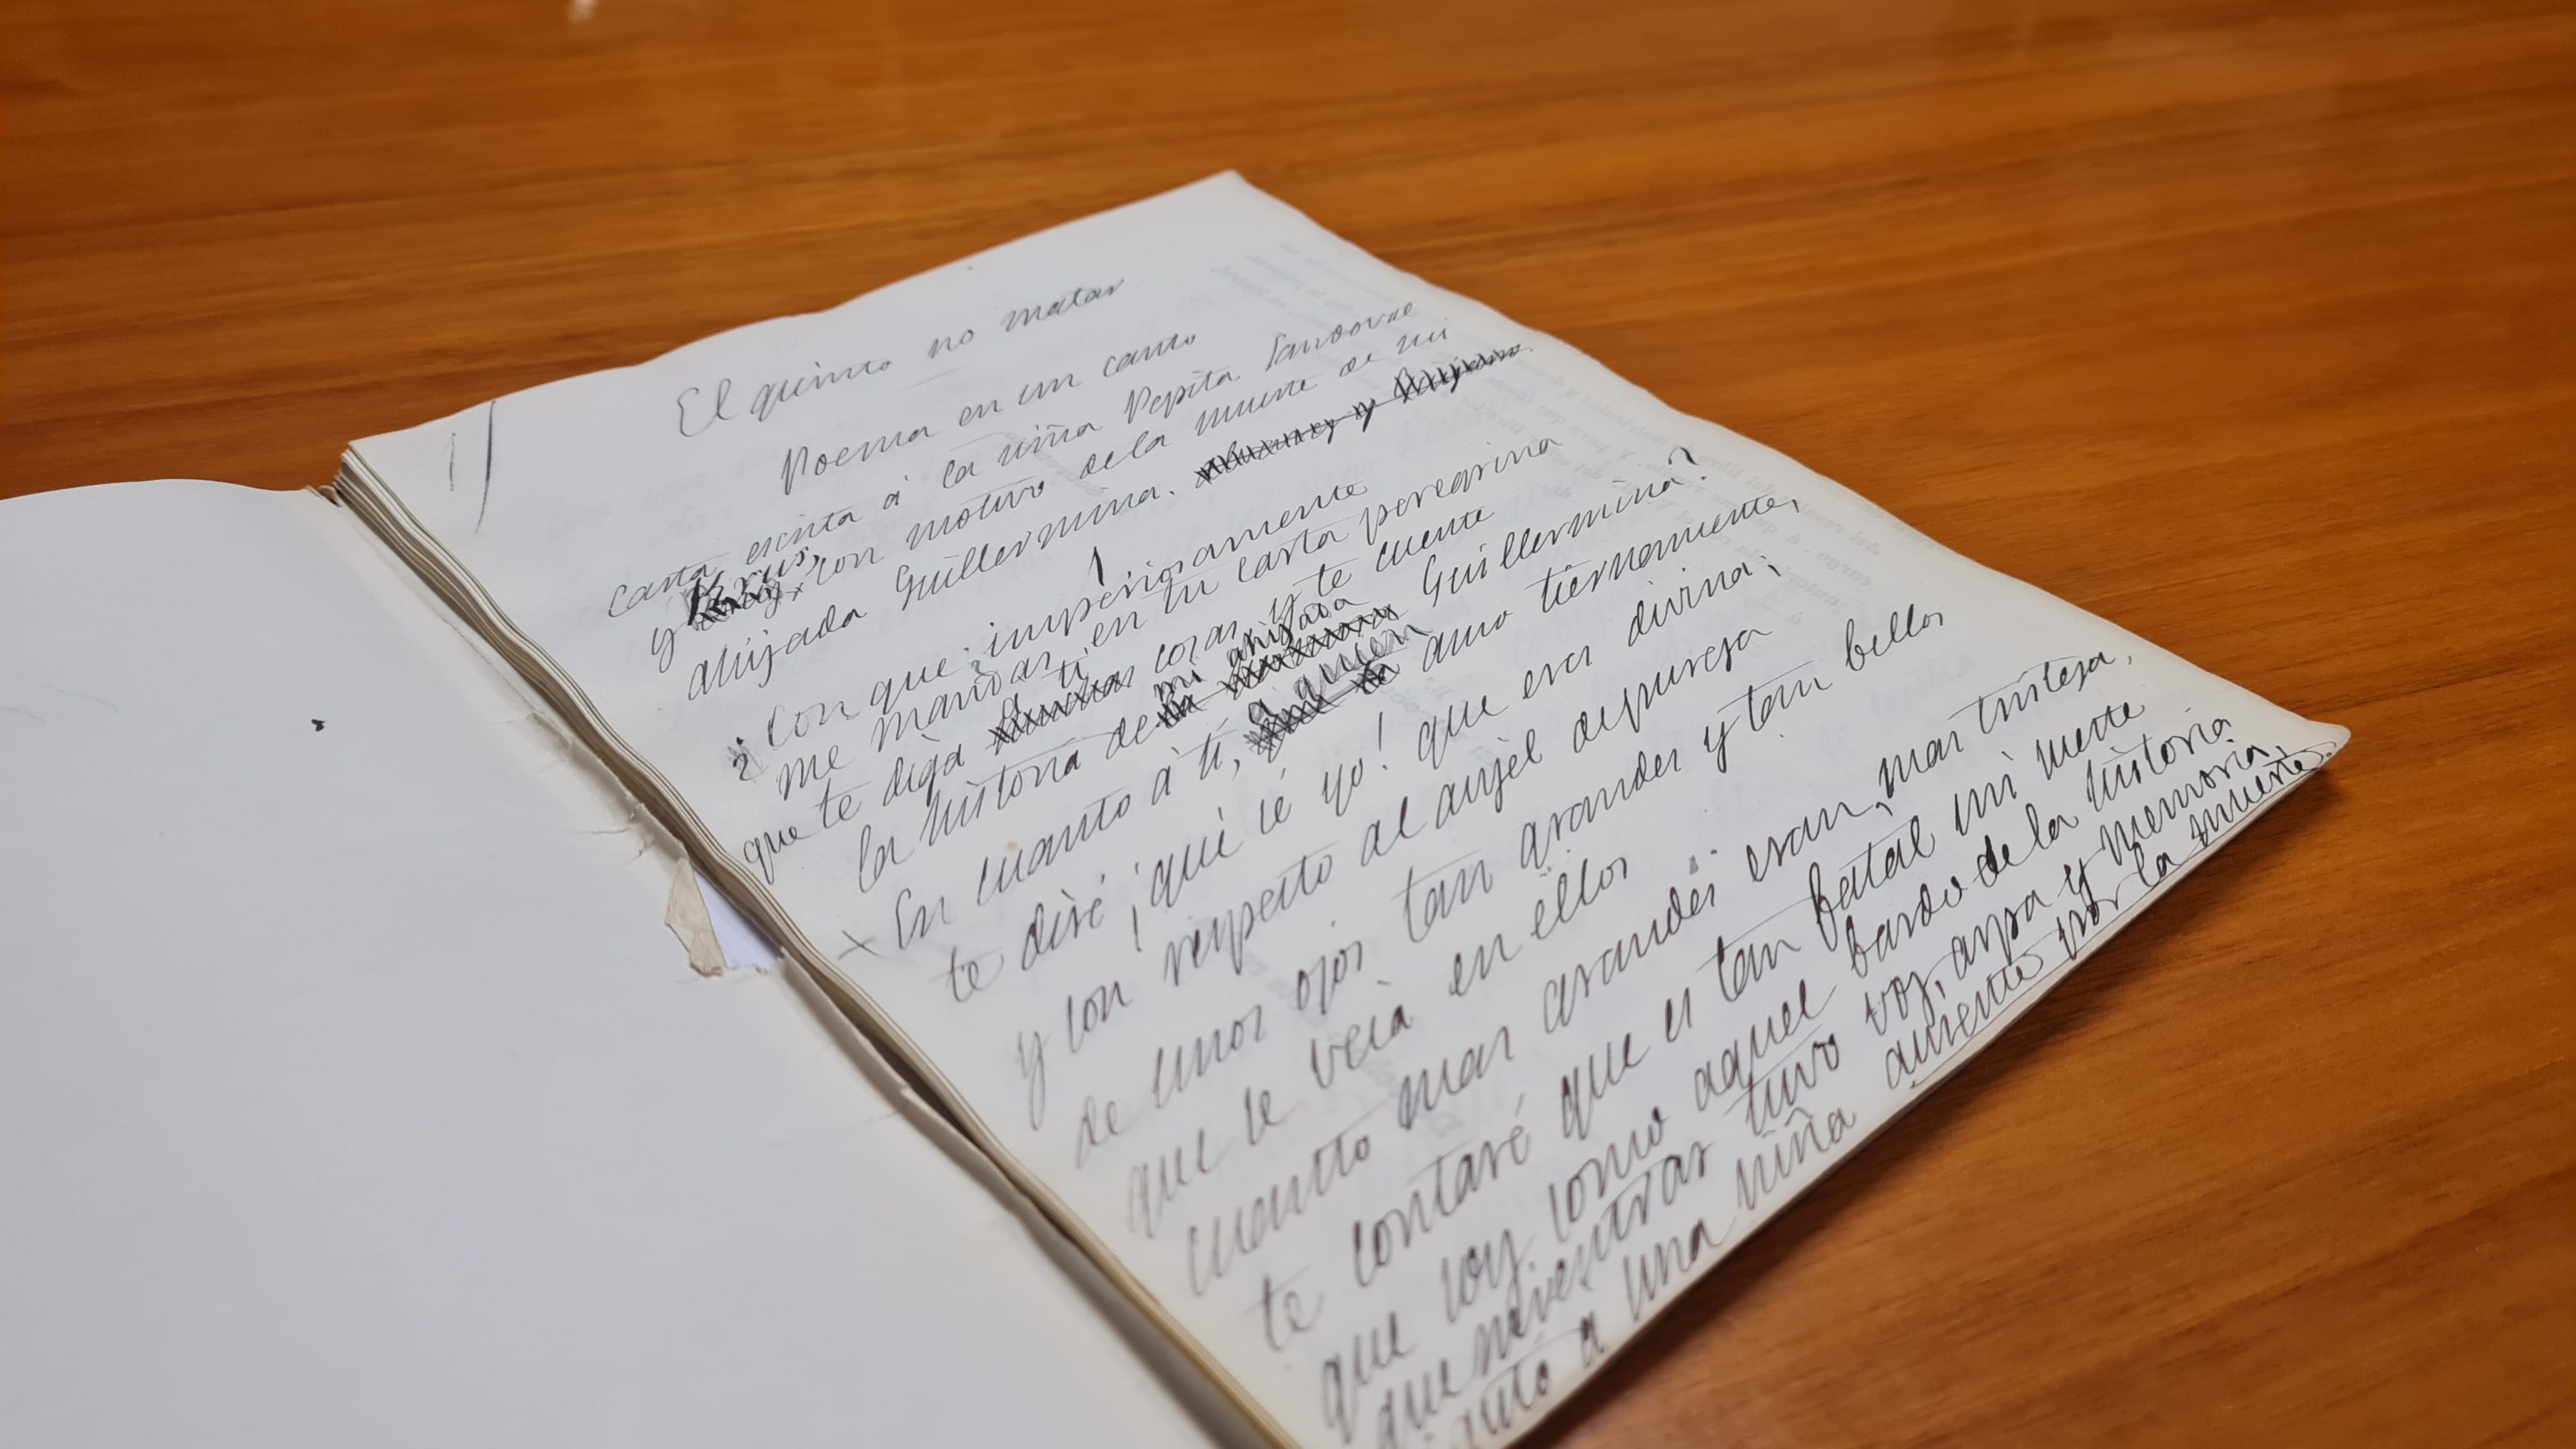 1)
El quinto no matar
Poema en un canto
carta escrita á la niña Pepita Sandoval
y Krus, con motivo de la muerte de mi
ahijada Guillermina.
1
¿Con que imperiosamente
me mandas en tu carta peregrina
que te diga á ti cosas, y te cuente
la historia de mi ahijada Guillermina?
x En cuanto á ti, á quien amo tiernamente,
te diré ¡qué sé yo! que eres divina;
y con respeto al anjel de pureza
de unos ojos tan grandes y tan bellos
que se veia en ellos
cuantto mas grandes eran, mas tristeza,
te contaré que es tan fatal mi suerte
que soy como aquel bardo de la historia
que mientras tuvo voz, arpa y memoria,
cantó a una niña ausente por la muerte.